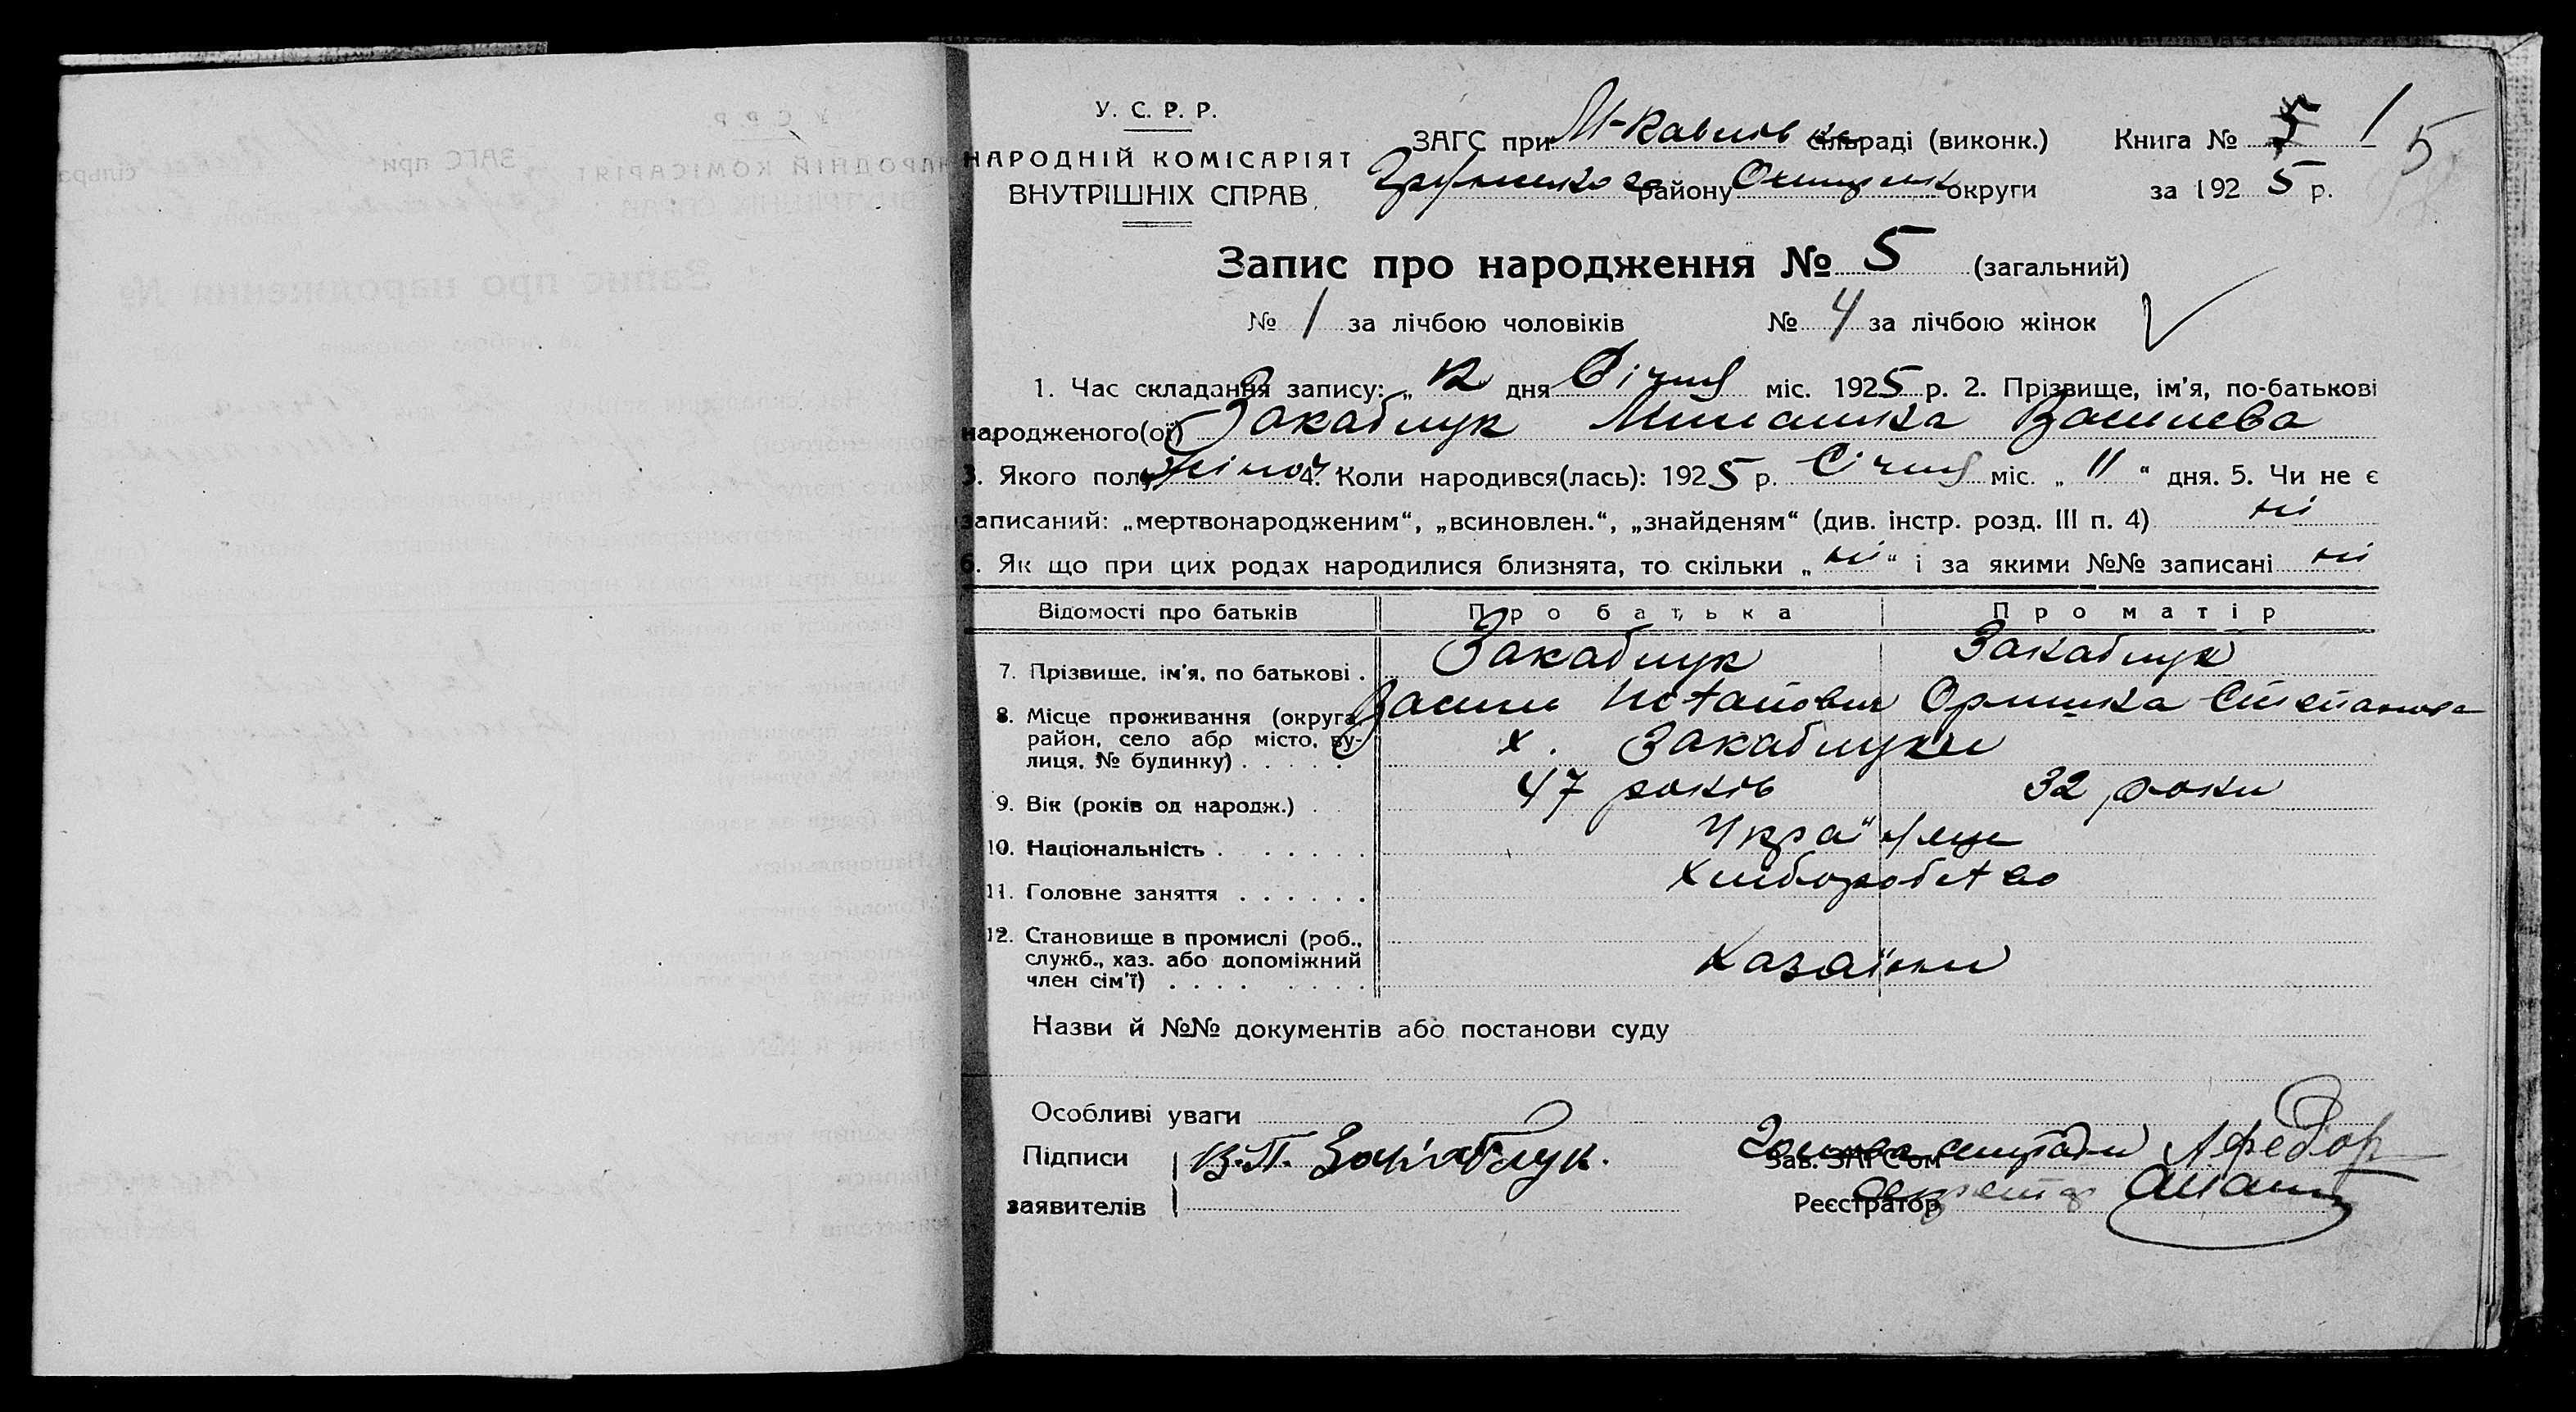 У. С. Р. Р.
НАРОДНІЙ КОМІСАРІЯТ
ВНУТРІШНІХ СПРАВ.
ЗАГС при М-Павлов сільраді (виконк.) Книга № 5 1
5
району округи за 1925 р.
Запис про народження № 5 (загальний)
№ 1 за лічбою чоловіків № 4 за лічбою жінок
1. Час складання запису: „12 дня Січня міс. 1925 р. 2. Прізвище, ім'я, по-батькові
народженого(ої) Закаблук Василева
3. Якого полу жіноч 4. Коли народився(лась): 1925 р. Січня міс. „ 11 “ дня. 5. Чи не є
записаний: „мертвонародженим“, „всиновлен.“, „знайденям“ (див. інстр. розд. III п. 4) ні
6. Як що при цих родах народилися близнята, то скільки „ ні “ і за якими №№ записані ні
Відомості про батьків Про батька Про матір
7. Прізвище, ім'я, по батькові . Закаблук Закаблук
Василь Потапович Оришка Степанова
8. Місце проживання (округа, район, село або місто, ву-
лиця, № будинку) . . . . . х. Закаблуки
9. Вік (років од народж.) . 47 років 32 роки
10. Національність . . . . . . . Україїнці
11. Головне заняття . . . . . . Хліборобство
12. Становище в промислі (роб.,
служб., хаз. або допоміжний
член сім'ї) . . . . . . . . Хазаїни
Назви й №№ документів або постанови суду
Особливі уваги
Підписи В.П. Закаблук. Зав. ЗАГС'ом Голова сільради
заявителів Реєстратор секретар